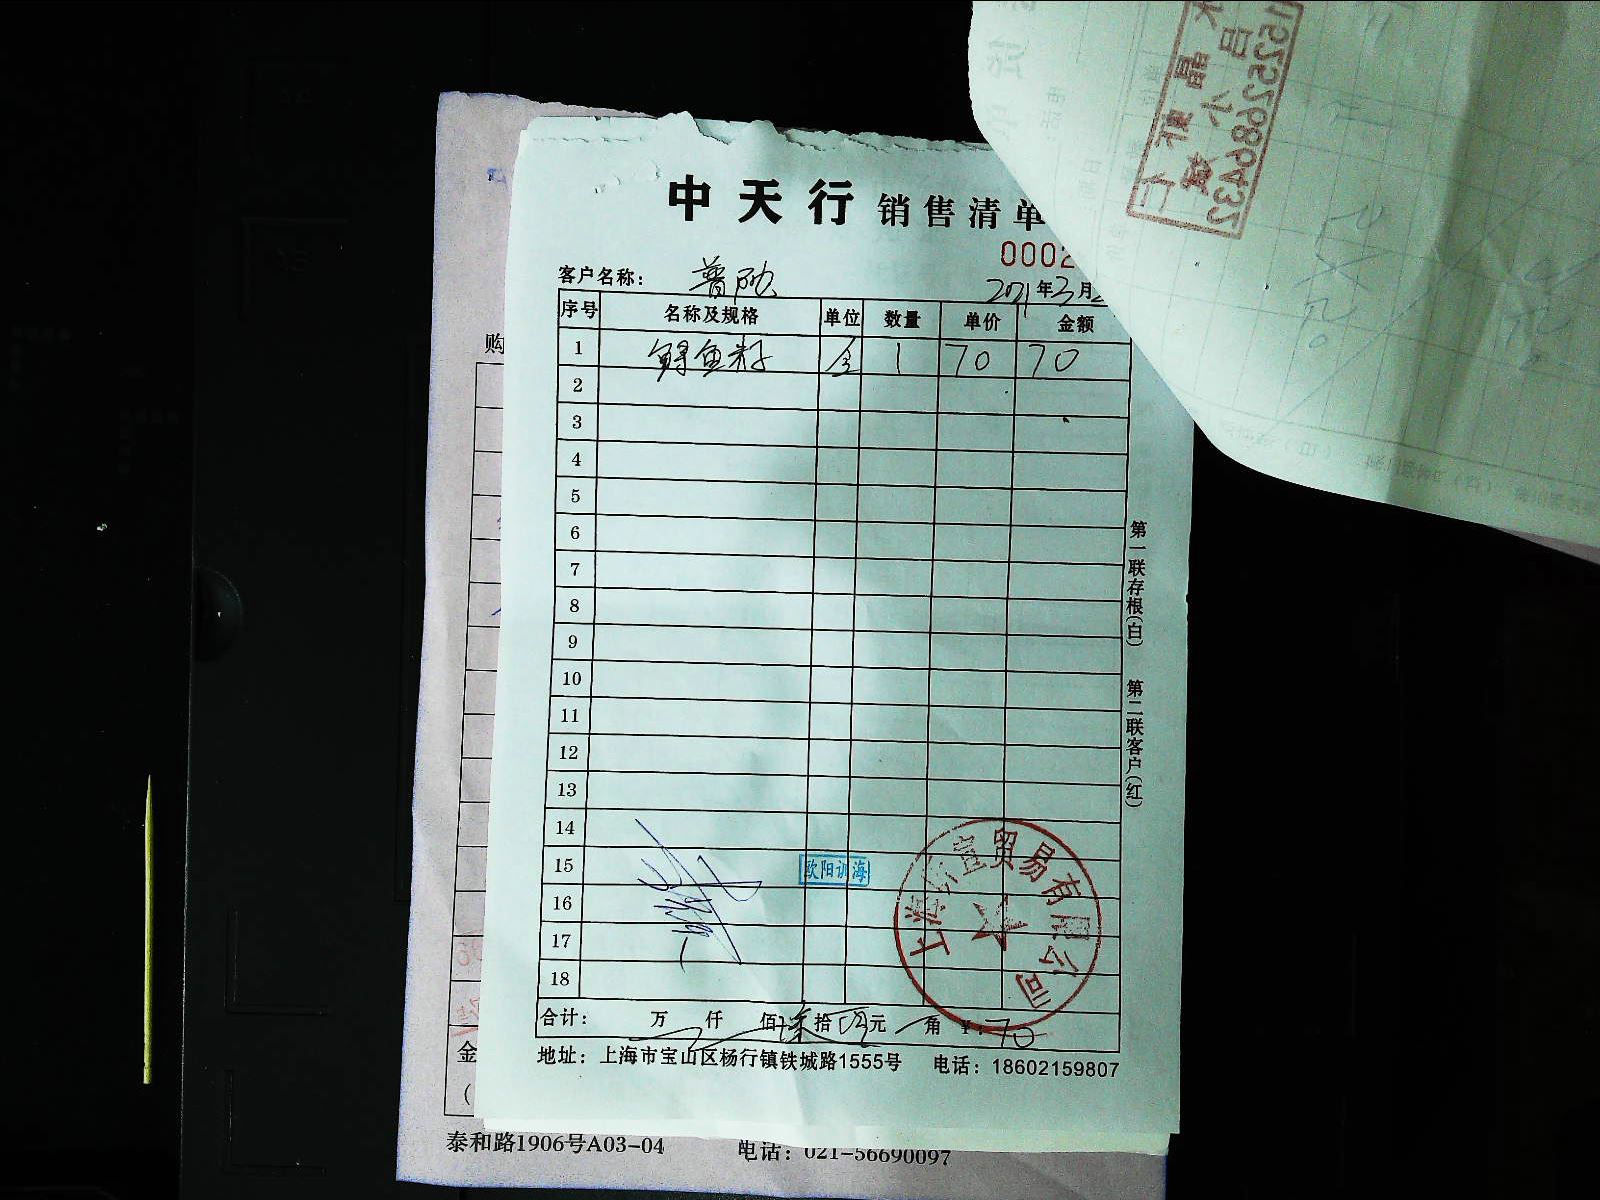 中天行 销售清单
0002
客户名称： 普陀
2021年3月
序号 名称及规格 单位 数量 单价 金额
1 鲟鱼籽 盒 1 70 70
2
3
4
5
6
7
8
9
10
11
12
13
14
15
16
17
18
欧阳训海
贸易有限公司
合计： 万 仟 佰 柒 拾 元 角 ¥：70
地址：上海市宝山区杨行镇铁城路1555号 电话：18602159807
第一联存根(白) 第二联客户(红)
购
金
(
泰和路1906号A03-04 电话：021-56690097
15252686432